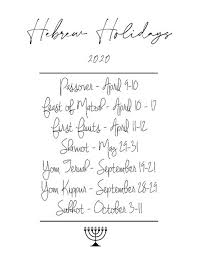 Hebrew Holidays
2020
Passover - April 9-10
Feast of Matzo - April 10 - 17
First fruits - April 11-12
Shavuot - May 29-31
Yom Teruah - September 19-21
Yom Kippur - September 28-29
Sukkot - October 3-11